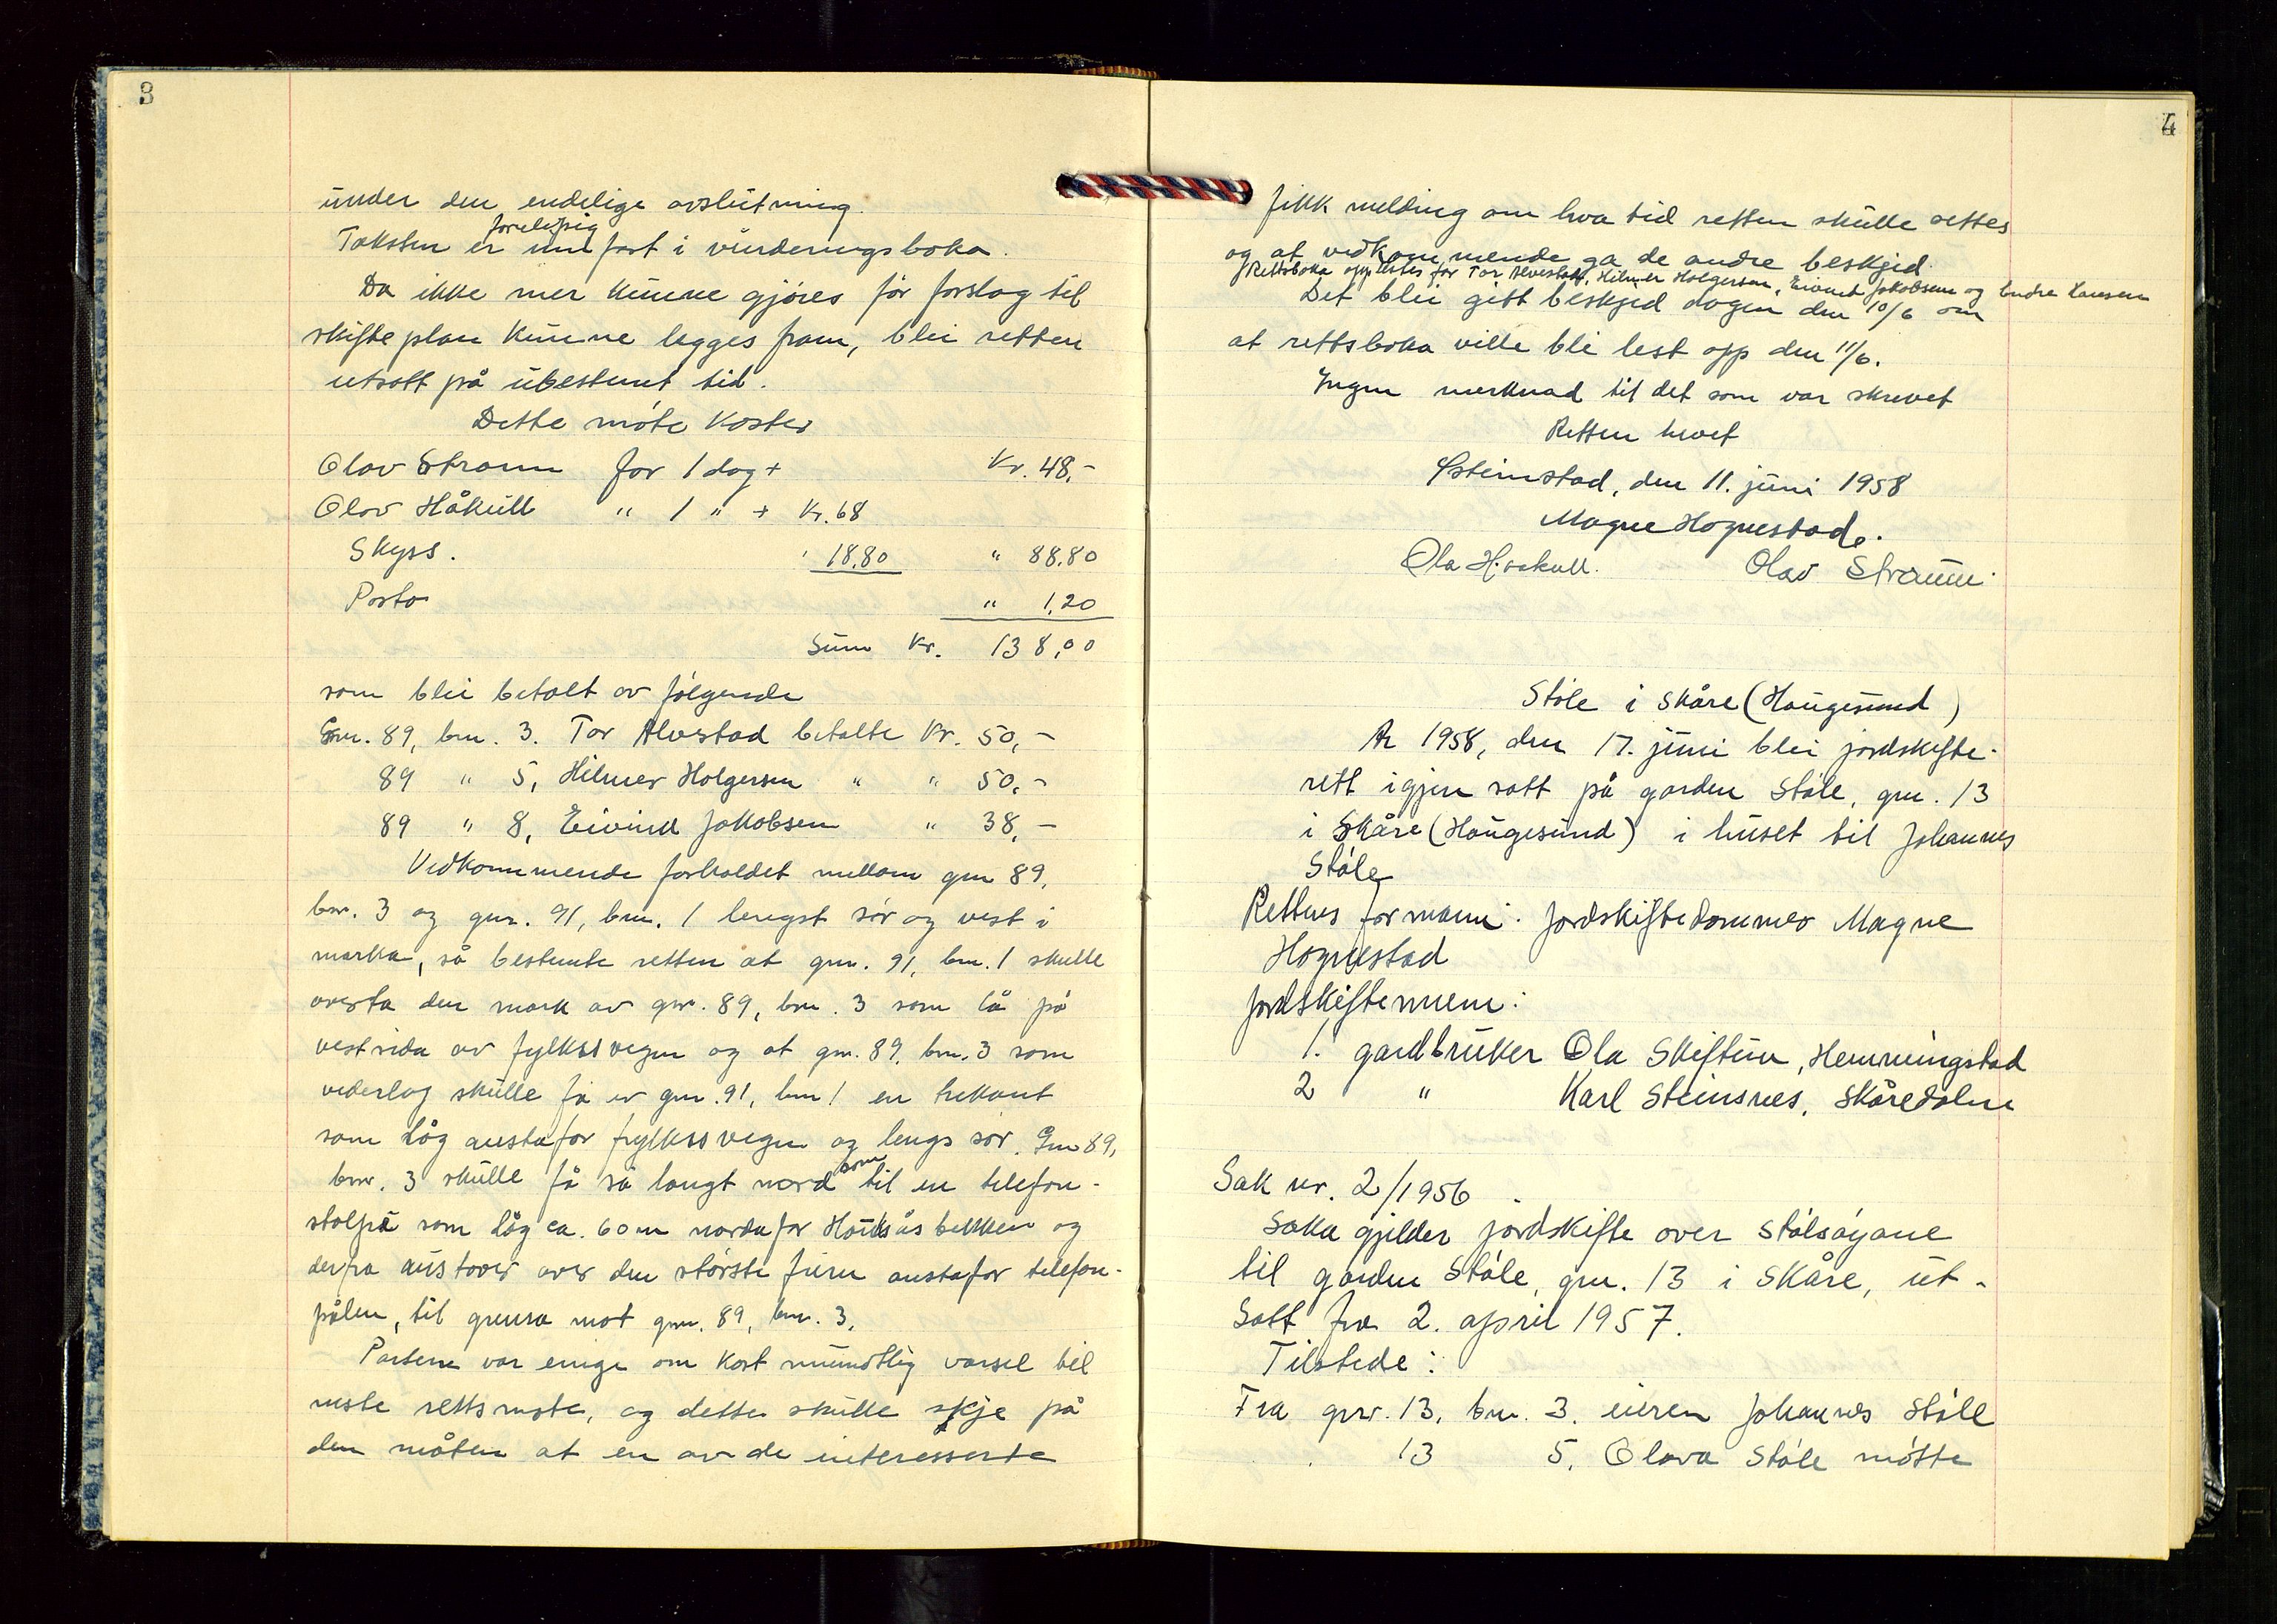 3
under den endelige avslutning.
foreløpig
Taksten er innført i vurderingsboka.
Da ikke mer kunne gjøres før forslag til
skifteplan kunne legges fram, blei retten
utsatt på ubestemt tid.
Dette møte koster
Olav Straum for 1 dag + Kr. 48,-
Olav Håkull " 1 " + Kr. 68
Skyss. " 18,80 " 88,80
Porto " 1,20
Sum Kr. 138,00
som blei betalt av følgende
Gnr. 89, bnr. 3. Tor Alvestad betalte Kr. 50,-
89 " 5, Hilmer Holgersen " " 50,-
89 " 8, Eivind Jakobsen " 38,-
Vedkommende forholdet mellom gnr 89,
bnr. 3 og gnr. 91, bnr. 1 lengst sør og vest i
marka, så bestemte retten at gnr. 91, bnr. 1 skulle
overta den mark av gnr. 89, bnr. 3 som lå på
vestsida av fylkesvegen og at gnr. 89, bnr. 3 som
vederlag skulle få av gnr. 91, bnr 1 en trekant
som låg austafor fylkesvegen og lengs sør. Gnr 89,
bnr. 3 skulle få så langt nord som til en telefon-
stolpe som låg ca. 60 m nordafor bekken og
derfra austover over den største furu austafor telefon-
pålen, til grensa mot gnr. 89, bnr. 3.
Partene var enige om kort muntlig varsel til
neste rettsmøte, og dette skulle skje på
den måten at en av de interesserte
4
fikk melding om hva tid retten skulle settes
og at vedkommende ga de andre beskjed.
Rettsboka opplestes for Tor Alvestad, Hilmer Holgersen, Eivind Jakobsen og Endre Hansen
Det blei gitt beskjed dagen den 10/6 om
at rettsboka ville bli lest opp den 11/6.
Ingen merknad til det som var skrevet
Retten hevet
den 11. juni 1958
Magne Hognestad.
Ola Håkull. Olav Straum.
Støle i Skåre (Haugesund)
År 1958, den 17. juni blei jordskifte-
rett igjen satt på garden Støle, gnr. 13
i Skåre (Haugesund) i huset til Johannes
Støle
Rettens formann: Jordskiftedommer Magne
Hognestad
Jordskiftemenn:
1. gardbruker Ola Skiftun, Hemmingstad
2 " Karl Steinsnes, Skåredalen
Sak nr. 2/1956.
Saka gjelder jordskifte over Stølsøyane
til garden Støle, gnr. 13 i Skåre, ut-
satt fra 2. april 1957.
Tilstede:
Fra gnr. 13, bnr. 3. eieren Johannes Støle
13 5. Olava Støle møtte